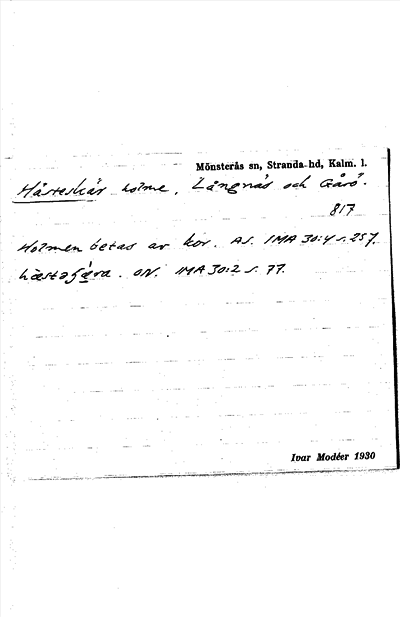 Mönsterås sn, Stranda hd, Kalm. l.
Hästeskär holme, Långnäs och Gårö.
817
Holmen betas av kor. AS. IMA 30:4 s. 257.
ON. IMA 30:2 s. 77.
Ivar Modéer 1930